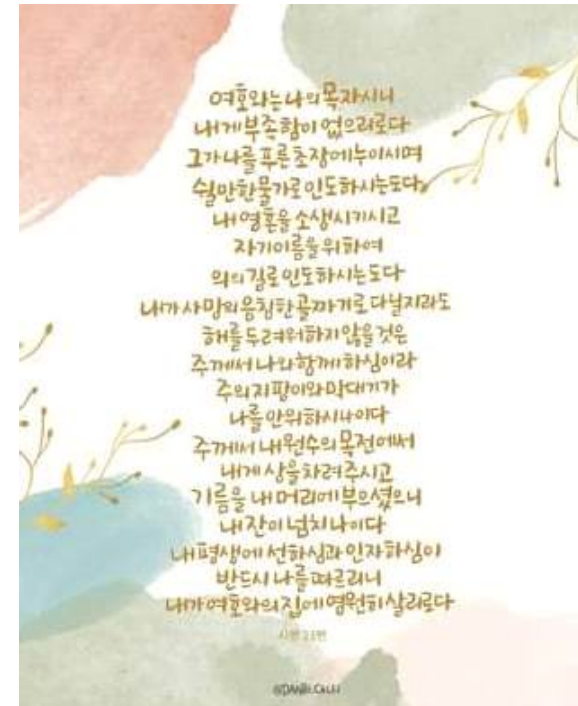 여호와는 나의 목자시니
내게 부족함이 없으리로다
그가 나를 푸른 초장에 누이시며
쉴만한 물가로 인도하시는도다
내 영혼을 소생시키시고
자기 이름을 위하여
의의 길로 인도하시는도다
내가 사망의 음침한 골짜기로 다닐지라도
해를 두려워하지 않을 것은
주께서 나와 함께 하심이라
주의 지팡이와 막대기가
나를 안위하시나이다
주께서 내 원수의 목전에서
내게 상을 차려 주시고
기름을 내 머리에 부으셨으니
내 잔이 넘치나이다
내 평생에 선하심과 인자하심이
반드시 나를 따르리니
내가 여호와의 집에 영원히 살리로다
시편 23편